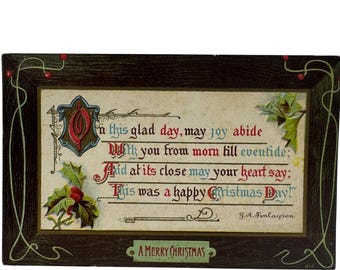 On this glad day, may joy abide
With you from morn till eventide;
And at its close may your heart say;
This was a happy Christmas Day!"
G.A. Finlayson
A MERRY CHRISTMAS